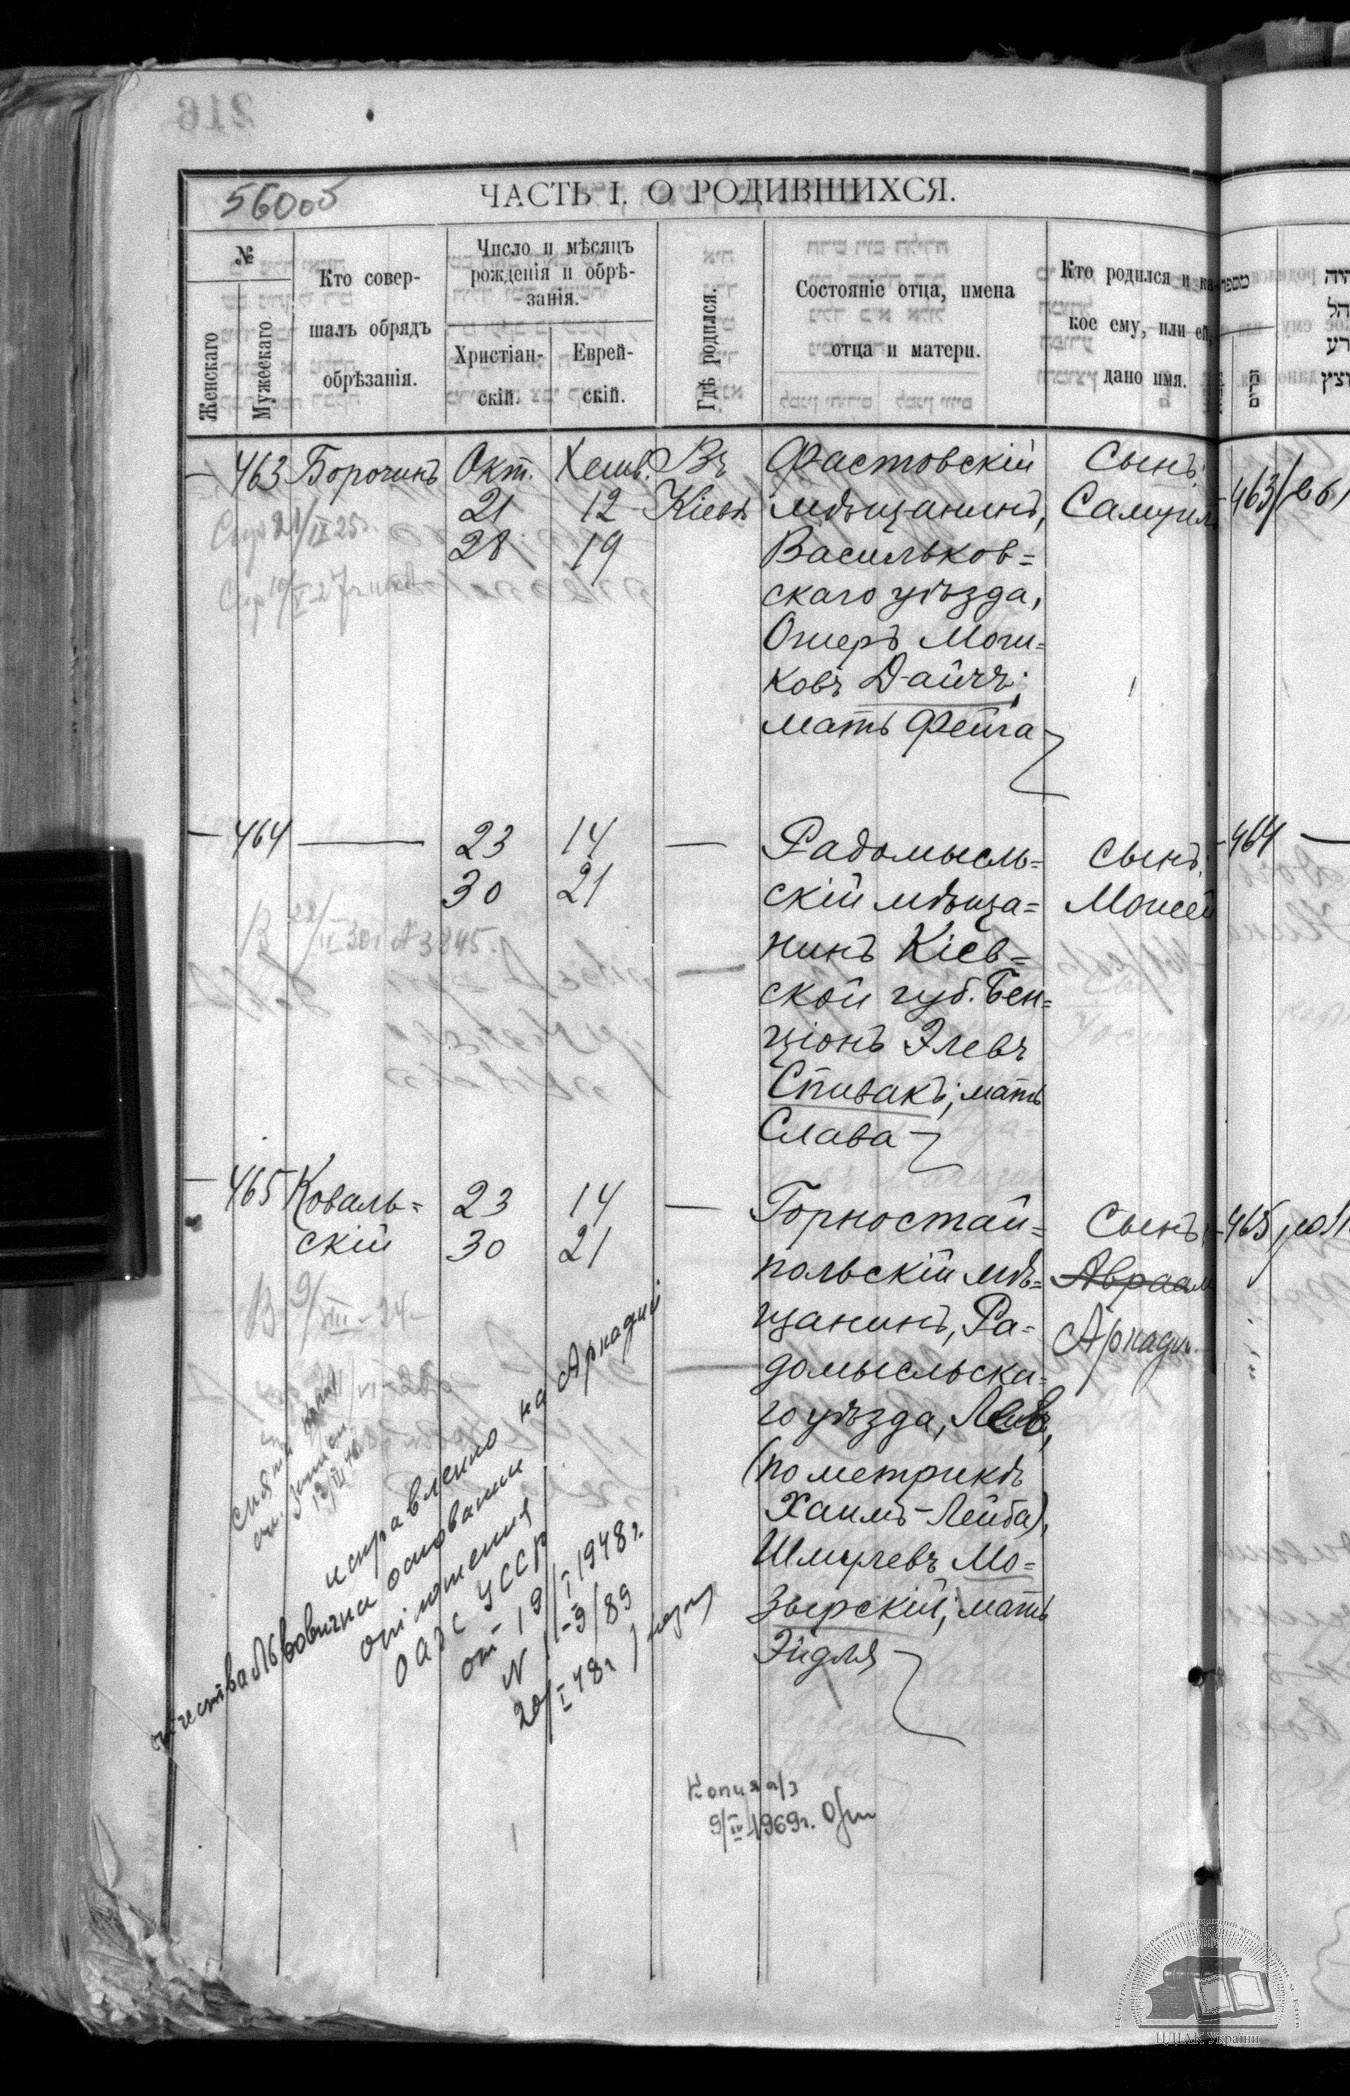 560об
ЧАСТЬ I. О РОДИВШИХСЯ.
№
Женскаго
Мужескаго
Кто совер-
шалъ обрядъ
обрѣзанія.
Число и мѣсяцъ
рожденія и обрѣ-
занія.
Христіан-
скій.
Еврей-
скій.
Гдѣ родился.
Состояніе отца, имена
отца и матери.
Кто родился и ка-
кое ему, или ей,
дано имя.
463 Борочинъ Окт. Хешв. Въ
21 12 Кіевѣ
28 19
Фастовскій
мѣщанинъ,
Васильков-
скаго уѣзда,
Ошеръ Мош-
ковъ Дайчъ;
мать Фейга
Сынъ;
Самуил
463
464 23 14
30 21
Радомысль-
скій мѣща-
нинъ Кіев-
ской губ. Бен-
ціонъ Элевъ
Спивакъ; мать
Слава
Сынъ;
Моисей
464
465 Коваль- 23 14
скій 30 21
Горностай-
польскій мѣ-
щанинъ, Ра-
домысльска-
го уѣзда, Левъ,
(по метрикѣ
Хаимъ-Лейба),
Шмулевъ Мо-
зырскій; мать
Эйдля
Сынъ;
Авраам
Аркадий
465
В 9/VIII-24-
исправлено на Аркадий
отчества Львовича на основании
отношения
ОАГС УССР
от 19/I 1948г.
N
20/I 48г
Копия а/з
9/IV 1969г.
ЦДІАК України